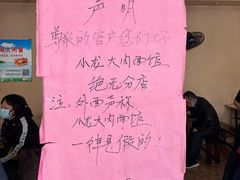 声明
尊敬的客户您们好
小龙大肉面馆
绝无分店
注:外面声称
小龙大肉面馆
一律是假的!